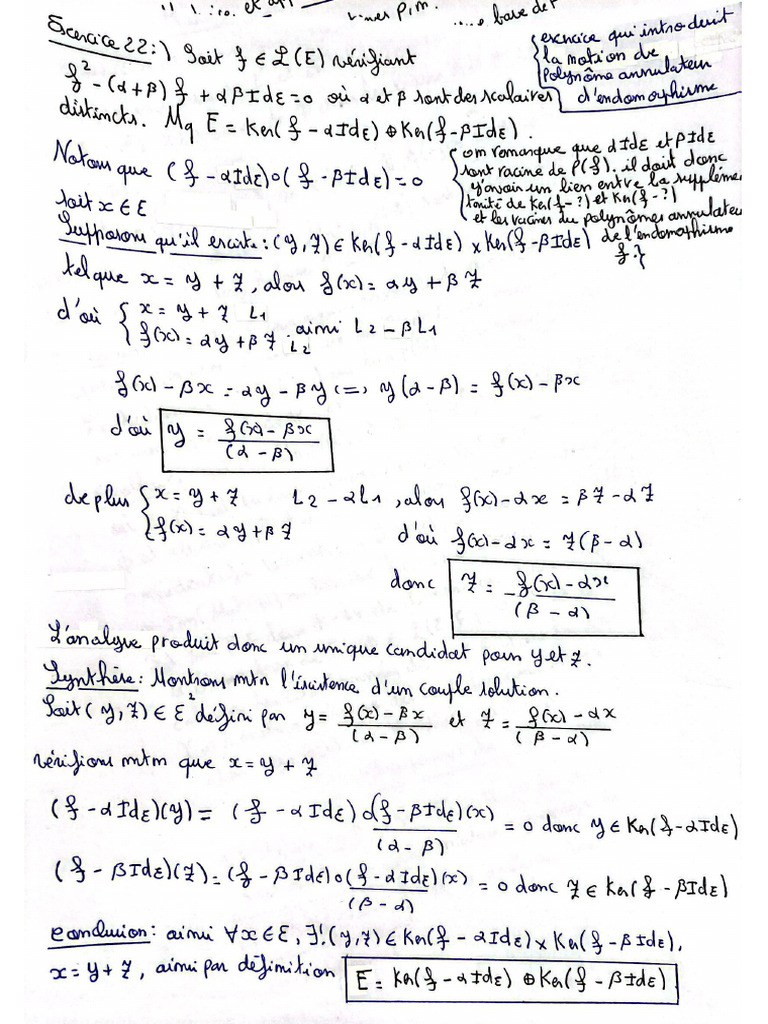 et
base de
Exercice 22:) Soit f ∈ L(E) vérifiant
{exercice qui introduit
la notion de
polynôme annulateur
d'endomorphisme
f² - (α+β) f + αβIdE = 0 où α et β sont des scalaires
distincts. Mq E = Ker(f - αIdE) ⊕ Ker(f - βIdE).
Notons que (f - αIdE)∘(f - βIdE) = 0
{on remarque que αIdE et βIdE
sont racine de P(f). il doit donc
y'avoir un lien entre la supplémen
tarité de Ker(f-?) et Ker(f-?)
et les racines du polynômes annulateur
de l'endomorphisme
f.}
soit x ∈ E
Supposons qu'il existe: (y,z) ∈ Ker(f - αIdE) × Ker(f - βIdE)
tel que x = y + z, alors f(x) = αy + βz
d'où { x = y + z L1
f(x) = αy + βz L2 ainsi L2 - βL1
f(x) - βx = αy - βy <=> y(α - β) = f(x) - βx
d'où y = f(x) - βx / (α - β)
de plus { x = y + z L2 - αL1, alors f(x) - αx = βz - αz
f(x) = αy + βz d'où f(x) - αx = z(β - α)
donc z = f(x) - αx / (β - α)
L'analyse produit donc un unique candidat pour y et z.
Synthèse: Montrons mtn l'éxistence d'un couple solution.
Soit (y,z) ∈ E² défini par y = f(x) - βx / (α - β) et z = f(x) - αx / (β - α)
vérifions mtn que x = y + z
(f - αIdE)(y) = (f - αIdE)∘(f - βIdE)(x) / (α - β) = 0 donc y ∈ Ker(f - αIdE)
(f - βIdE)(z) = (f - βIdE)∘(f - αIdE)(x) / (β - α) = 0 donc z ∈ Ker(f - βIdE)
conclusion: ainsi ∀x ∈ E, ∃!(y,z) ∈ Ker(f - αIdE) × Ker(f - βIdE),
x = y + z, ainsi par définition E = Ker(f - αIdE) ⊕ Ker(f - βIdE)